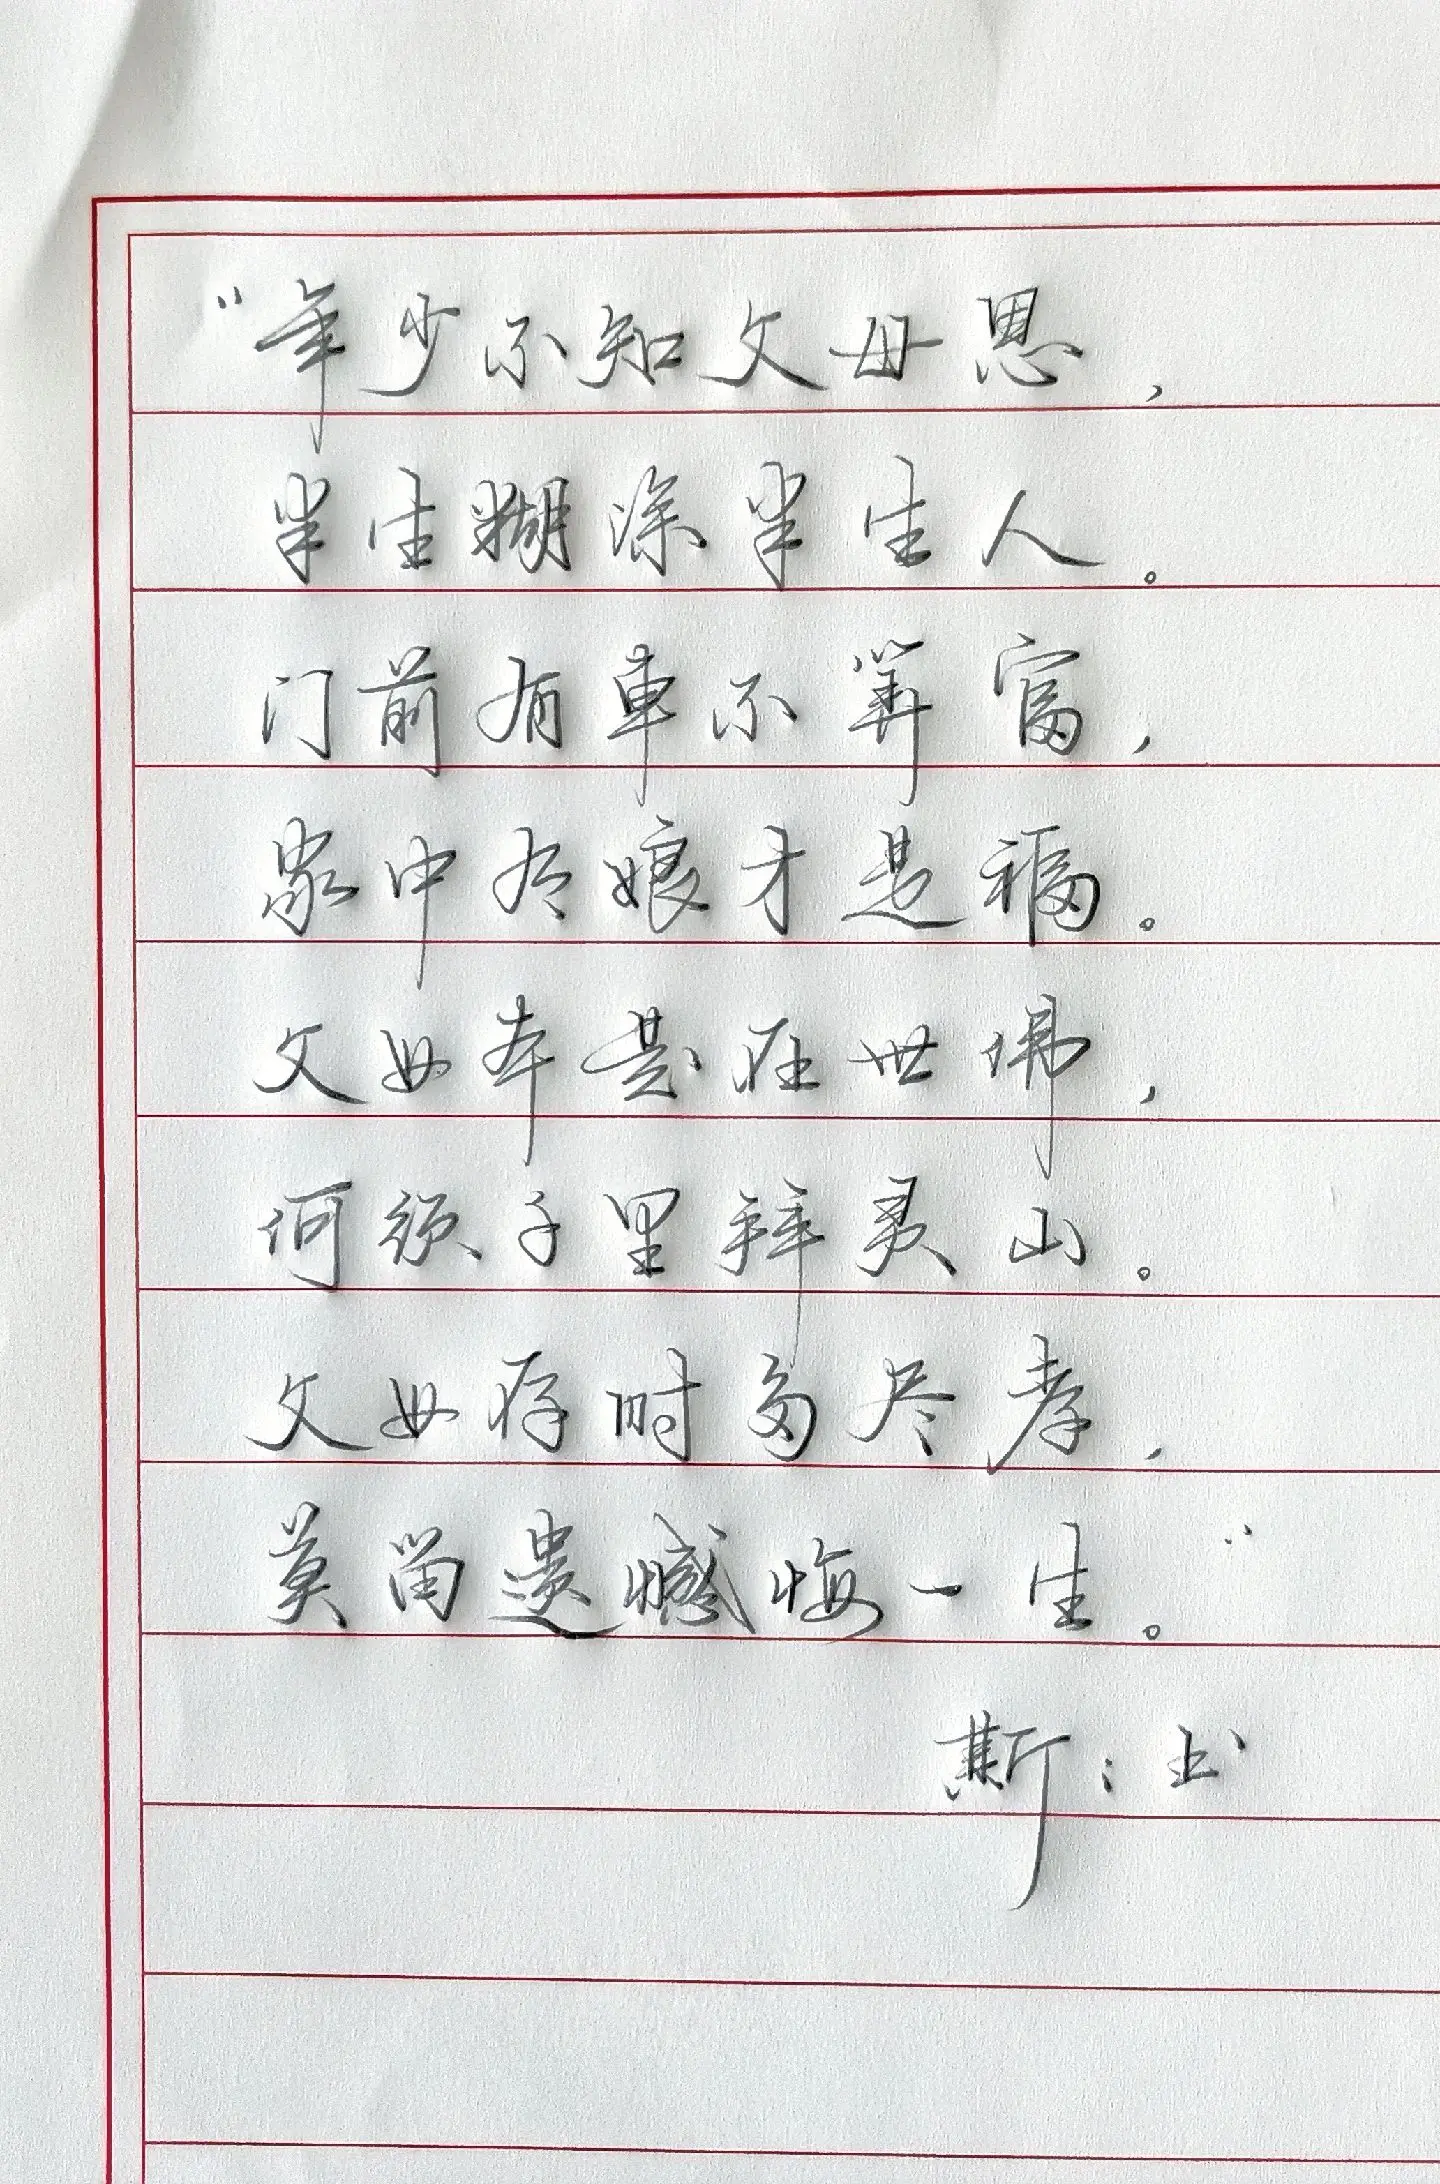 “年少不知父母恩，
半生糊涂半生人。
门前有車不算富，
家中有娘才是福。
父母本是在世佛，
何须千里拜灵山。
父母存时多尽孝，
莫留遗憾悔一生。”
斯：书